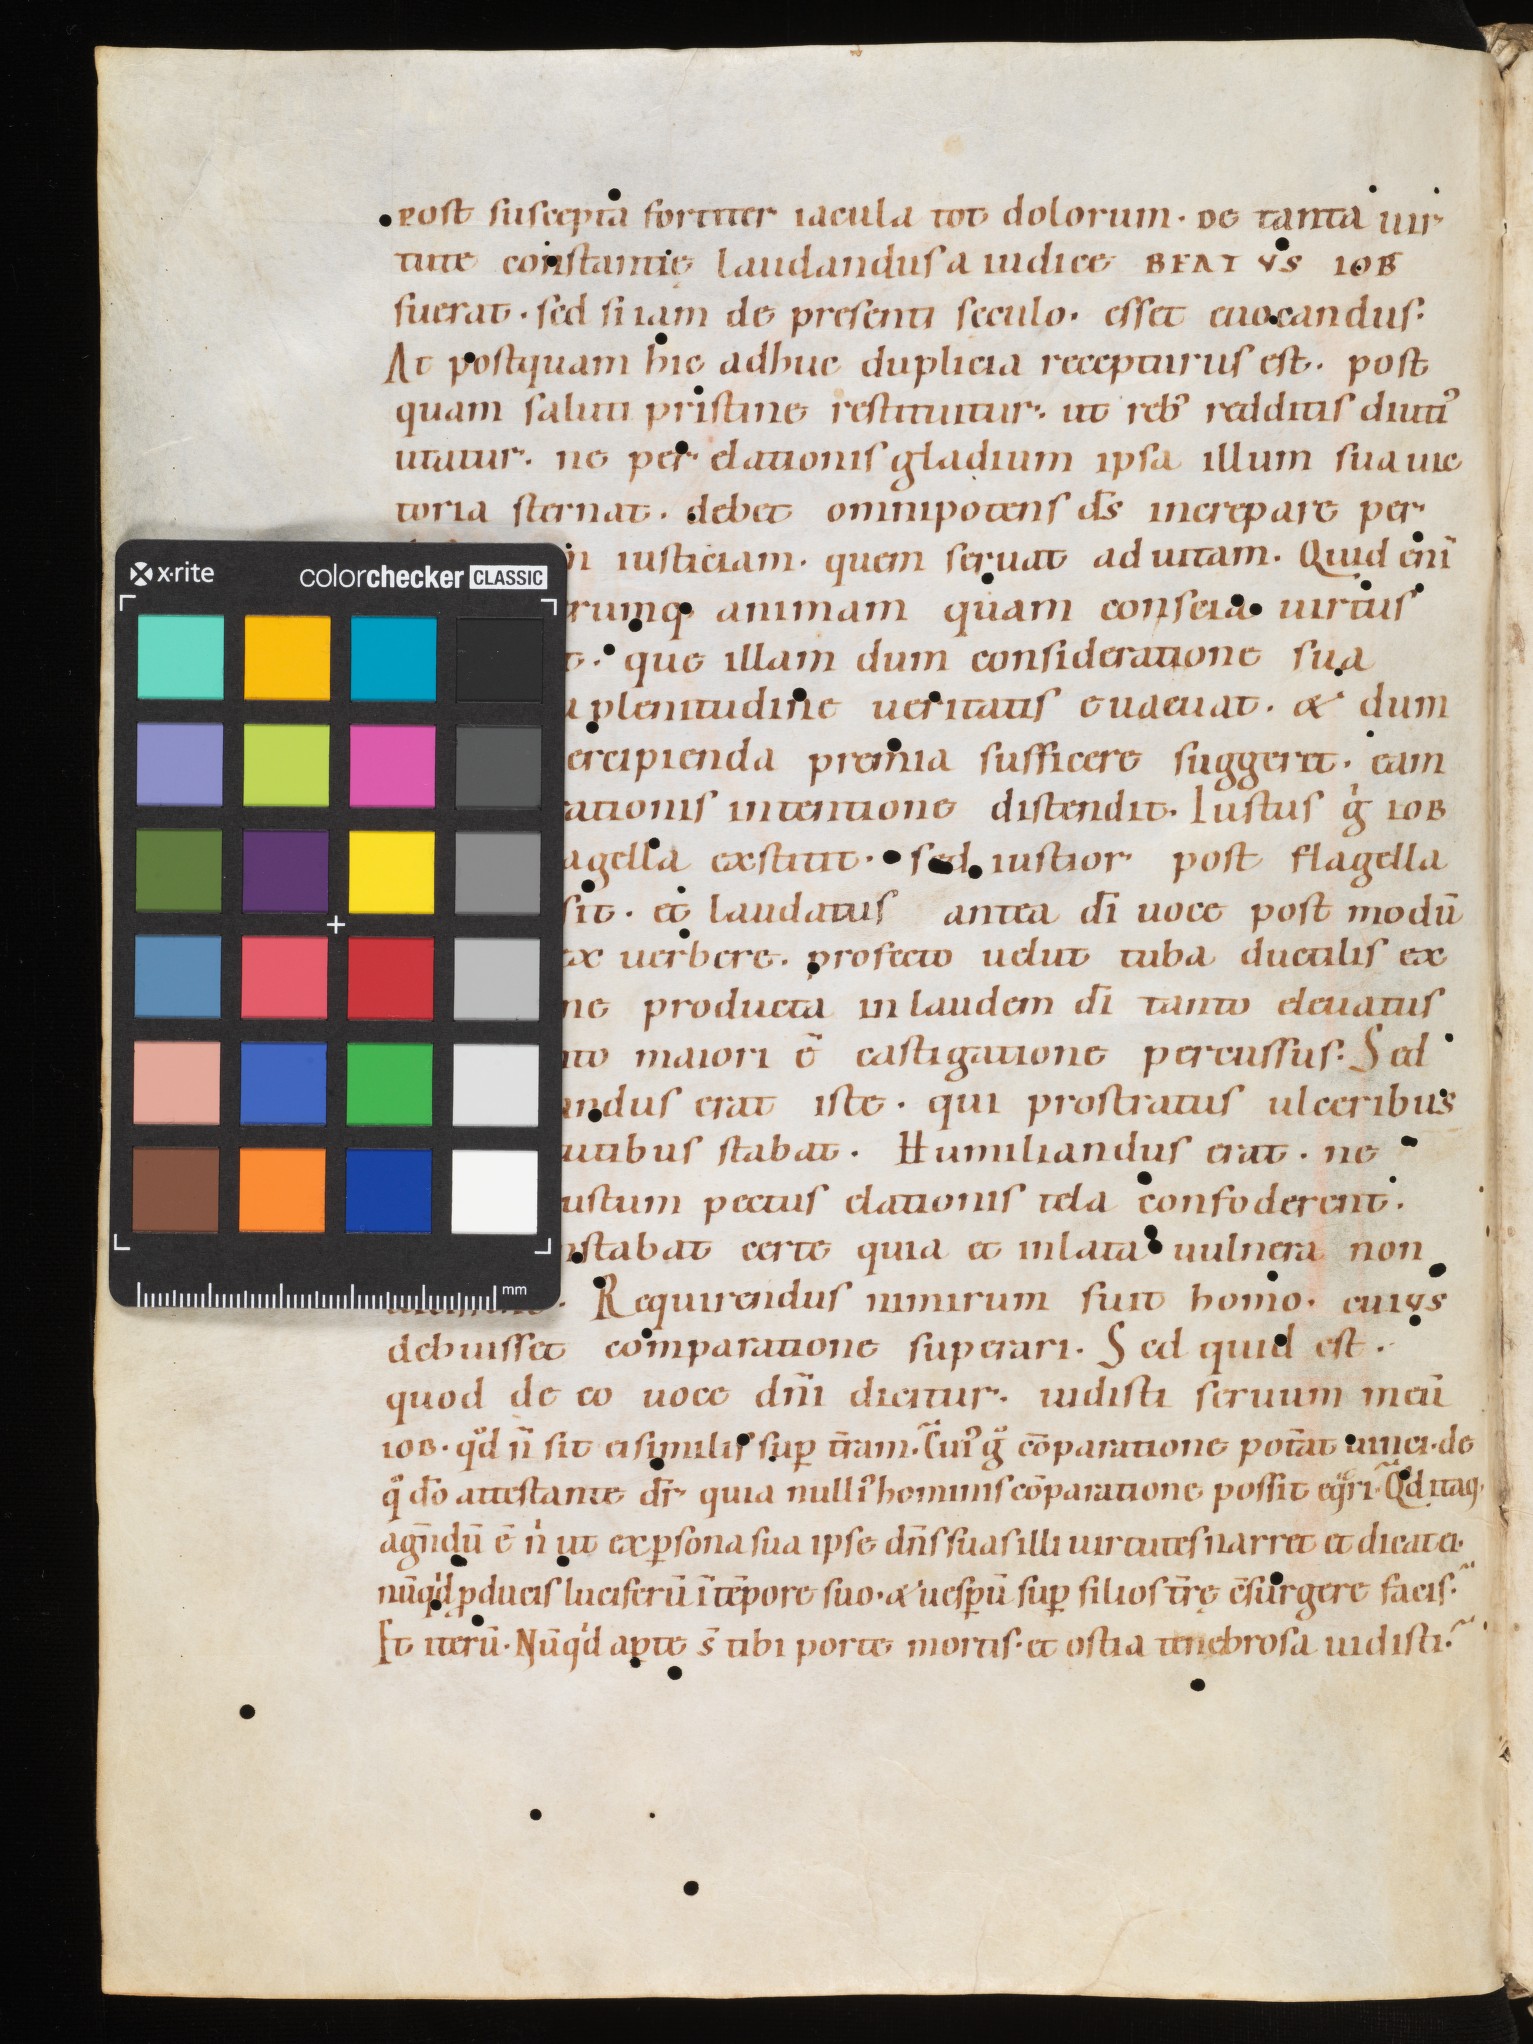 post suscepta fortiter iacula tot dolorum· De tanta uir
tute constantię laudandus a iudice BEATVS IOB
fuerat· sed si iam de presenti seculo· esset euocandus:
At postquam hic adhuc duplicia recepturus est· post
quam saluti pristine restituitur· ut rebꝰ redditis diutiꝰ
utatur· ne per elationis gladium ipsa illum sua uic
toria sternat· debet omnipotens d̄s increpare per
iusticiam· quem seruat ad uitam· Quid eni̅
rumq; animam quam conscia uirtus
que illam dum consideratione sua
plenitudine ueritatis euacuat· & dum
ercipienda premia sufficere suggerit· eam
ationis intentione distendit· Iustus g̊ IOB
agella exstitit· sed iustior post flagella
sit· et laudatus antea d̄i uoce post modū
ex uerbere· profecto uelut tuba ductilis ex
ne producta in laudem d̄i tanto eleuatus
to maiori ē castigatione percussus: Sed
andus erat iste· qui prostratus ulceribus
utibus stabat· Humiliandus erat· ne
ustum pectus elationis tela confoderent·
stabat certe quia et inlata uulnera non
Requirendus nimirum fuit homo· cuius
debuisset comparatione superari· Sed quid est·
quod de eo uoce dn̄i dicitur· uidisti seruum meū
IOB· qd n̄ sit ei similis sup t̄ram· Cuiꝰ g̊ cōparatione pot̄at uinci· de
q̊ d̄o attestante dr̄ quia nulliꝰ hominis cōparatione possit eq̄ri· Qd itaq;
agn̄dū ē n̓ ut ex ꝑsona sua ipse dn̄s suas illi uirtutes narret et dicat ei·
nūqd ꝓducis luciferū ī tēpore suo· & uesꝑū suꝑ filios t̄rę c̄surgere facis·
Et iterū· Nūqd apte s̄ tibi porte mortis· et ostia tenebrosa uidisti·
x·rite
colorchecker CLASSIC
mm